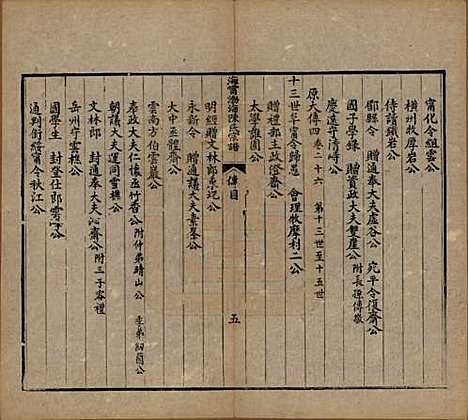 甯化令組雲公
橫州牧厚岩公
侍讀鐵岩公
鄞縣令　贈通奉大夫虛谷公　宛平令復齋公
國子學錄　贈資政大夫雙崖公　附長孫傳敬
慶遠守清嶠公
原大傳四　卷二十六　第十三世至十五世
十三世阜甯令歸愚　會理牧摩利二公
贈禮部主政澄齋公
太學雄圃公
海甯渤海陳氏宗譜　傳目　五
明經贈文林郎東圯公
永新令　贈通議大夫素峯公
大中丞體齋公
雲南方伯雲巖公
奉政大夫仁懷丞竹香公　附仲弟晴山公　季弟紉蘭公
朝議大夫運同雪樵公
文林郎　封通奉大夫沁齋公　附三子容禮
岳州守雲極公
國學生　封登仕郎雲者公
通判銜繒甯令秋江公